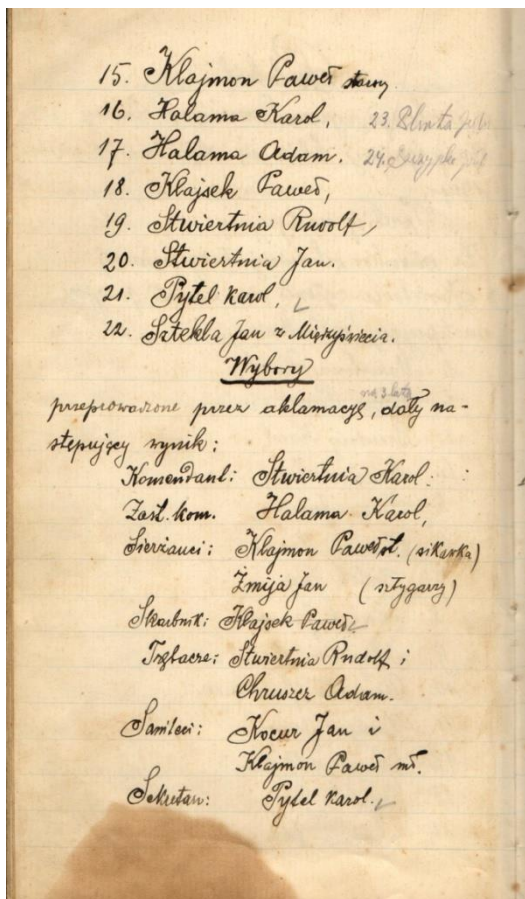 15. Klajmon Paweł stary
16. Halama Karol, 23.
17. Halama Adam. 24.
18. Kłajsek Paweł,
19. Stwiertnia Rudolf,
20. Stwiertnia Jan.
21. Pytel Karol,
22. Sztekla Jan z Międzyświecia.
Wybory
na 3 lata
przeprowadzone przez aklamację, dały na-
stępujący wynik:
Komendant: Stwiertnia Karol.
Zast. kom. Halama Karol,
Sierżanci: Klajmon Paweł st. (sikawka)
Żmija Jan (sztygarzy)
Skarbnik: Kłajsek Paweł
Trębacze: Stwiertnia Rudolf i
Chruszcz Adam.
Kocur Jan i
Klajmon Paweł mł.
Sekretarz: Pytel Karol.